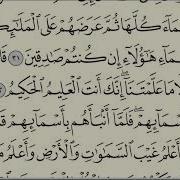 سْمَآءَ كُلَّهَا ثُمَّ عَرَضَهُمْ عَلَى ٱلْمَلَٰٓئِكَ
مَآءِ هَٰٓؤُلَآءِ إِن كُنتُمْ صَٰدِقِينَ ٣١ قَا
مَا عَلَّمْتَنَآ إِنَّكَ أَنتَ ٱلْعَلِيمُ ٱلْحَكِيمُ
سْمَآئِهِمْ فَلَمَّآ أَنۢبَأَهُم بِأَسْمَآئِهِمْ قَا
أَعْلَمُ غَيْبَ ٱلسَّمَٰوَٰتِ وَٱلْأَرْضِ وَأَعْلَمُ